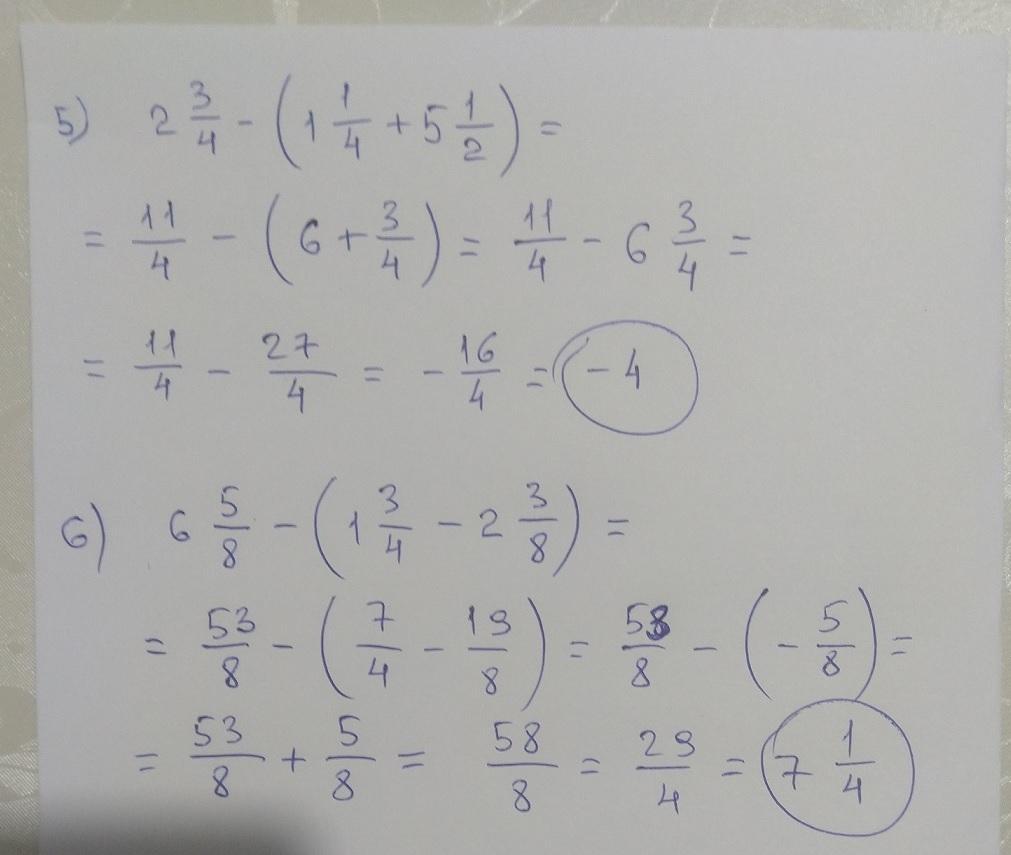 5) 2 3/4 - (1 1/4 + 5 1/2) =
= 11/4 - (6 + 3/4) = 11/4 - 6 3/4 =
= 11/4 - 27/4 = - 16/4 = - 4
6) 6 5/8 - (1 3/4 - 2 3/8) =
= 53/8 - (7/4 - 19/8) = 53/8 - (- 5/8) =
= 53/8 + 5/8 = 58/8 = 29/4 = 7 1/4